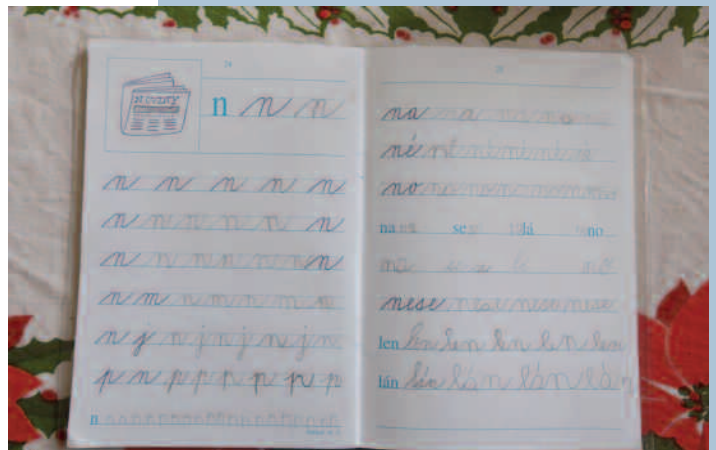 24
NOVINY
n n n
n n n n n
n n n n n n
n n n n n n n
n m n m n m n
n j n j n j n j n
p n p p p p p p
n
na na na na na
né né né né né né
no no no no no no
na se lá no
no
nese nese nese nese
len len len len len len
lán lán lán lán lán